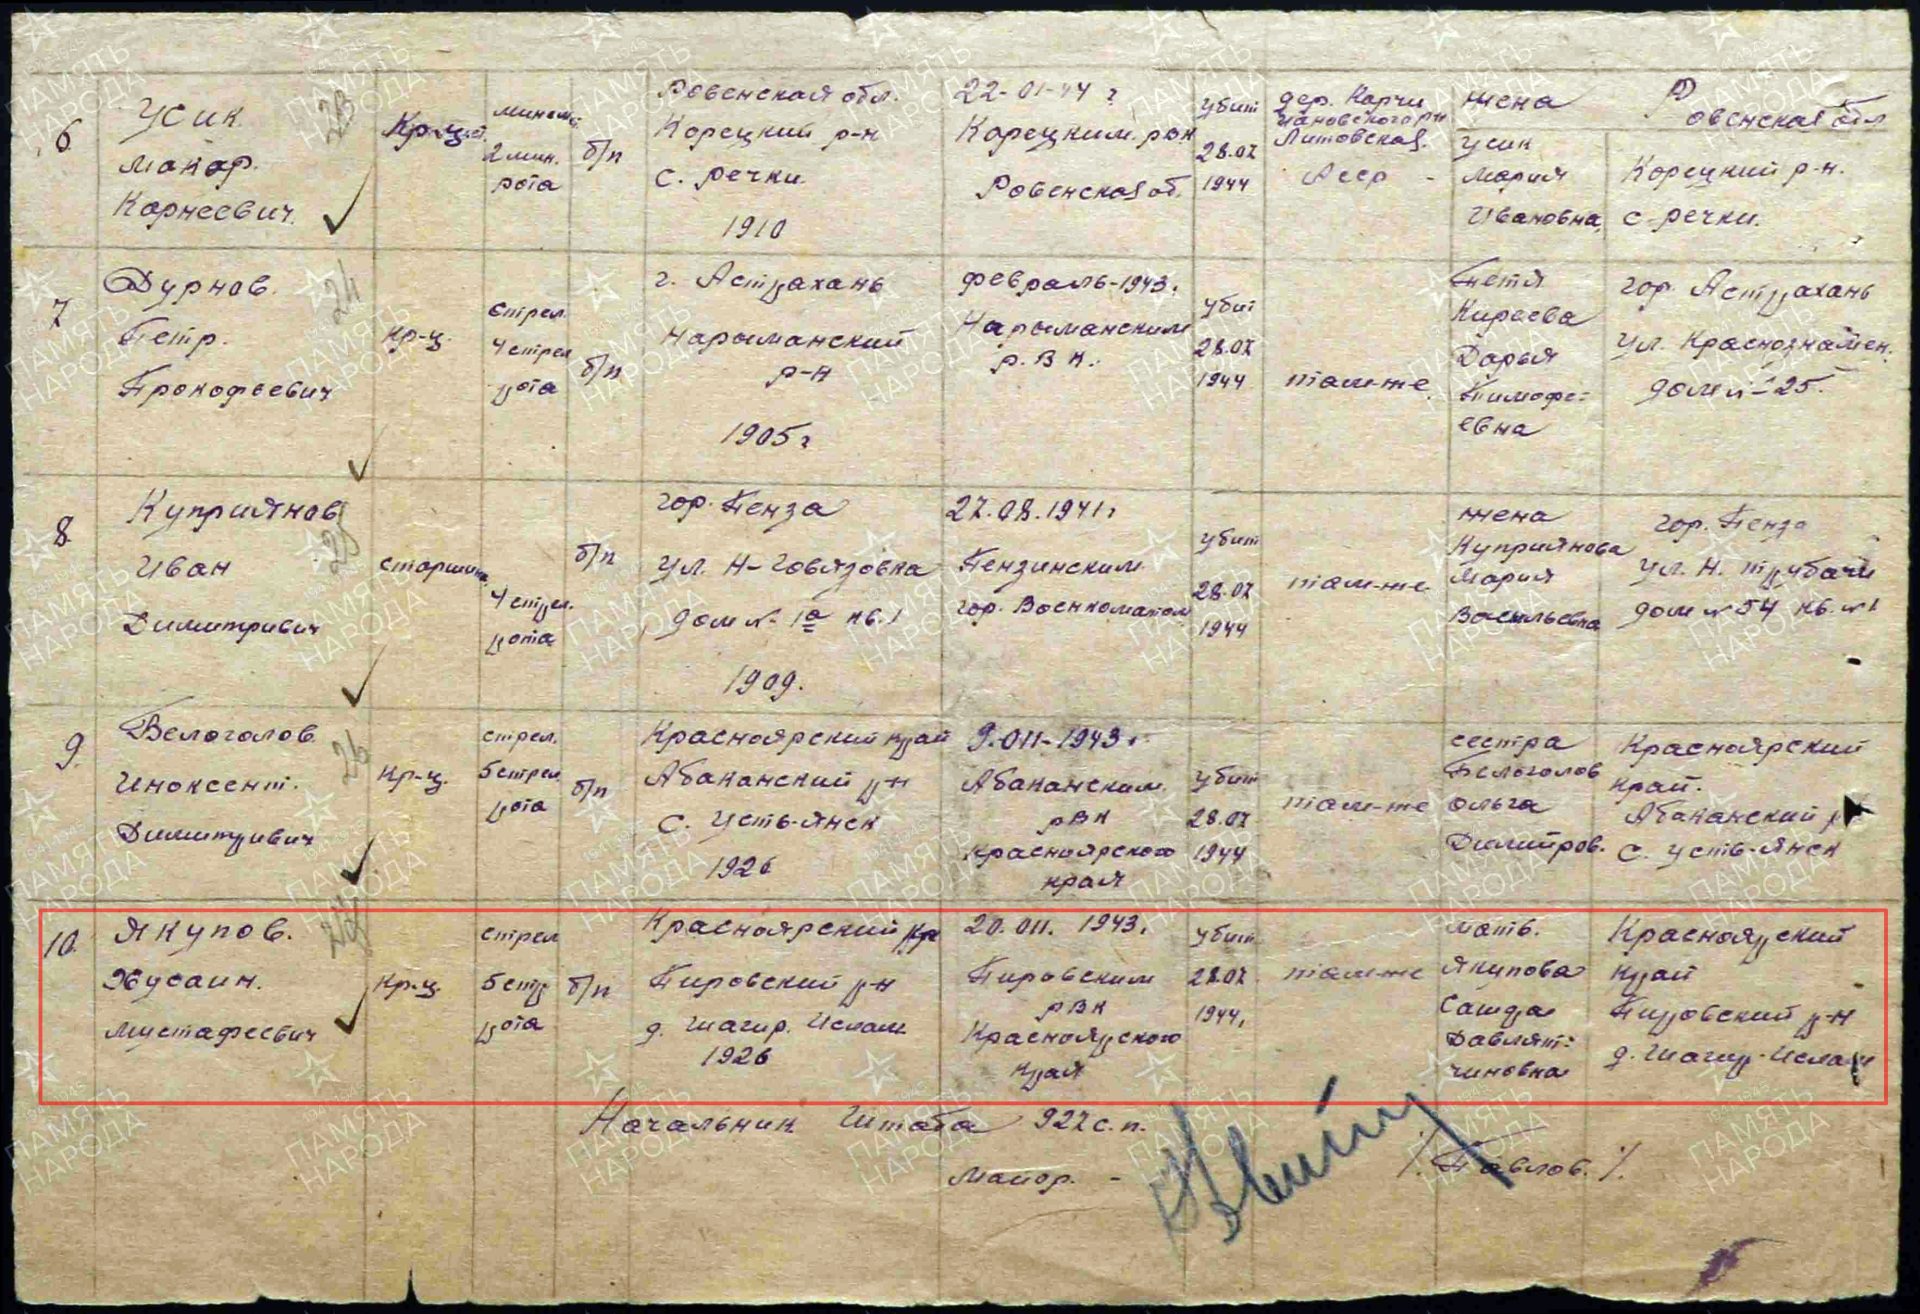 6
Усик
Макар.
Карнеевич.
23
Кр-ц
2 мин.
рота
б/п
Ровенская обл.
Корецкий р-н
с. речки.
1910
22-01-44 г
Корецким. рвк
Ровенская об.
убит
28.07
1944
дер. Карчи
Литовская.
Асср -
жена
Усик
Мария
Ивановна,
Ровенская обл
Корецкий р-н.
с-речки.
7
Дурнов.
Петр.
Прокофьевич
24
кр-ц.
стрел.
4 стрел
рота
б/п
г. Астрахань
Нариманский
р-н
1905 г
февраль-1943г
Нариманским
р.В.К.
убит
28.07
1944
там-же
тетя
Киреева
Дарья
Тимофе-
евна
гор. Астрахань
ул. Краснознамен.
дом №-25.
8
Куприянов
Иван
Димитриевич
25
старшина
4 стрел.
рота
б/п
гор. Пенза
ул. Н-Говязовка
дом №-1а кв.1
1909.
27.08.1941г
Пензинским
гор. Военкоматом
убит
28.07
1944
там-же
жена
Куприянова
Мария
Васильевна
гор. Пенза
ул. Н. трубачи
дом №54 кв. №1
9.
Белоголов.
Иноксент.
Димитриевич
26
Кр-ц.
стрел.
5 стрел
рота
б/п
Красноярский край
Абаканский р-н
с. Усть-Янск
1926
9.011-1943г
Абаканским.
рВК
Красноярского
края
убит
28.07
1944
там-же
сестра
Белоголов
Ольга
Димитров.
Красноярский
край.
Абаканский р
с. Усть-Янск
10.
Якупов.
Хусаин.
Мустафеевич
Кр-ц.
стрел
5 стр
рота
б/п
Красноярский кр
Пировский р-н
д. Шагир. Ислам
1926
20.011. 1943г
Пировским
рВК
Красноярского
края
убит
28.07
1944г
там-же
мать.
Якупова
Давлят-
чиновна
Красноярский
край
Пировский р-н
д. Шагир-Ислам
Начальник Штаба 927 с.п.
Майор. - /.Павлов./.
ПАМЯТЬ
НАРОДА